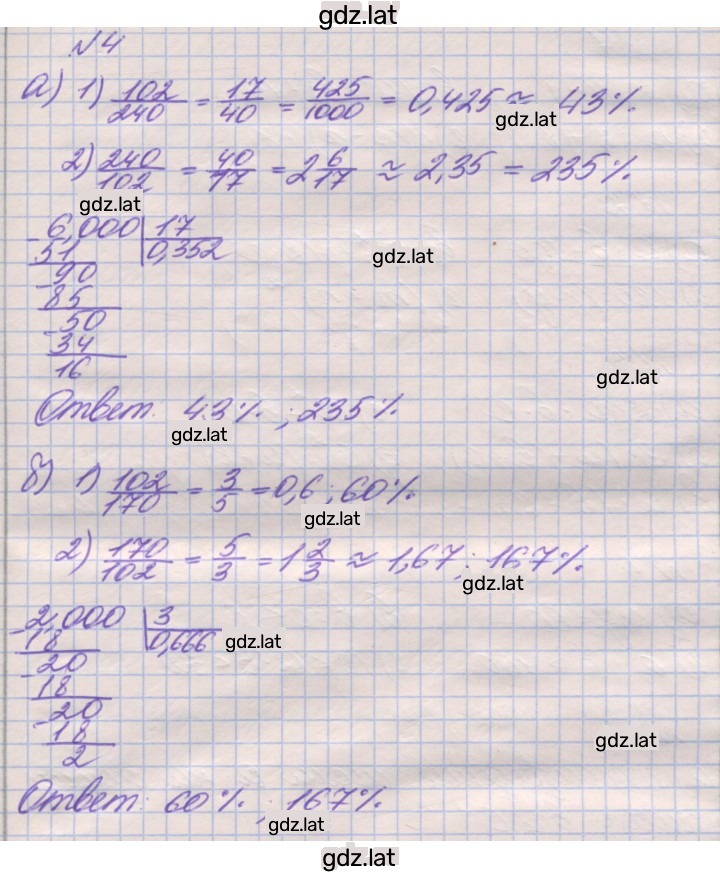 gdz.lat
N4
а) 1) 102/240 = 17/40 = 425/1000 = 0,425 ≈ 43%.
gdz.lat
2) 240/102 = 40/17 = 2 6/17 ≈ 2,35 = 235%.
gdz.lat
- 6,000 | 17
51 | 0,352
gdz.lat
- 90
85
- 50
34
16
gdz.lat
Ответ: 43% ; 235%.
gdz.lat
б) 1) 102/170 = 3/5 = 0,6 ; 60%.
gdz.lat
2) 170/102 = 5/3 = 1 2/3 ≈ 1,67 ; 167%.
gdz.lat
- 2,000 | 3
18 | 0,666
gdz.lat
- 20
18
- 20
18
2
gdz.lat
Ответ: 60% ; 167%.
gdz.lat
gdz.lat